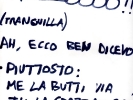 (TRANQUILLA)
AH, ECCO BEN DICEVO
• PIUTTOSTO:
ME LA BUTTI VIA